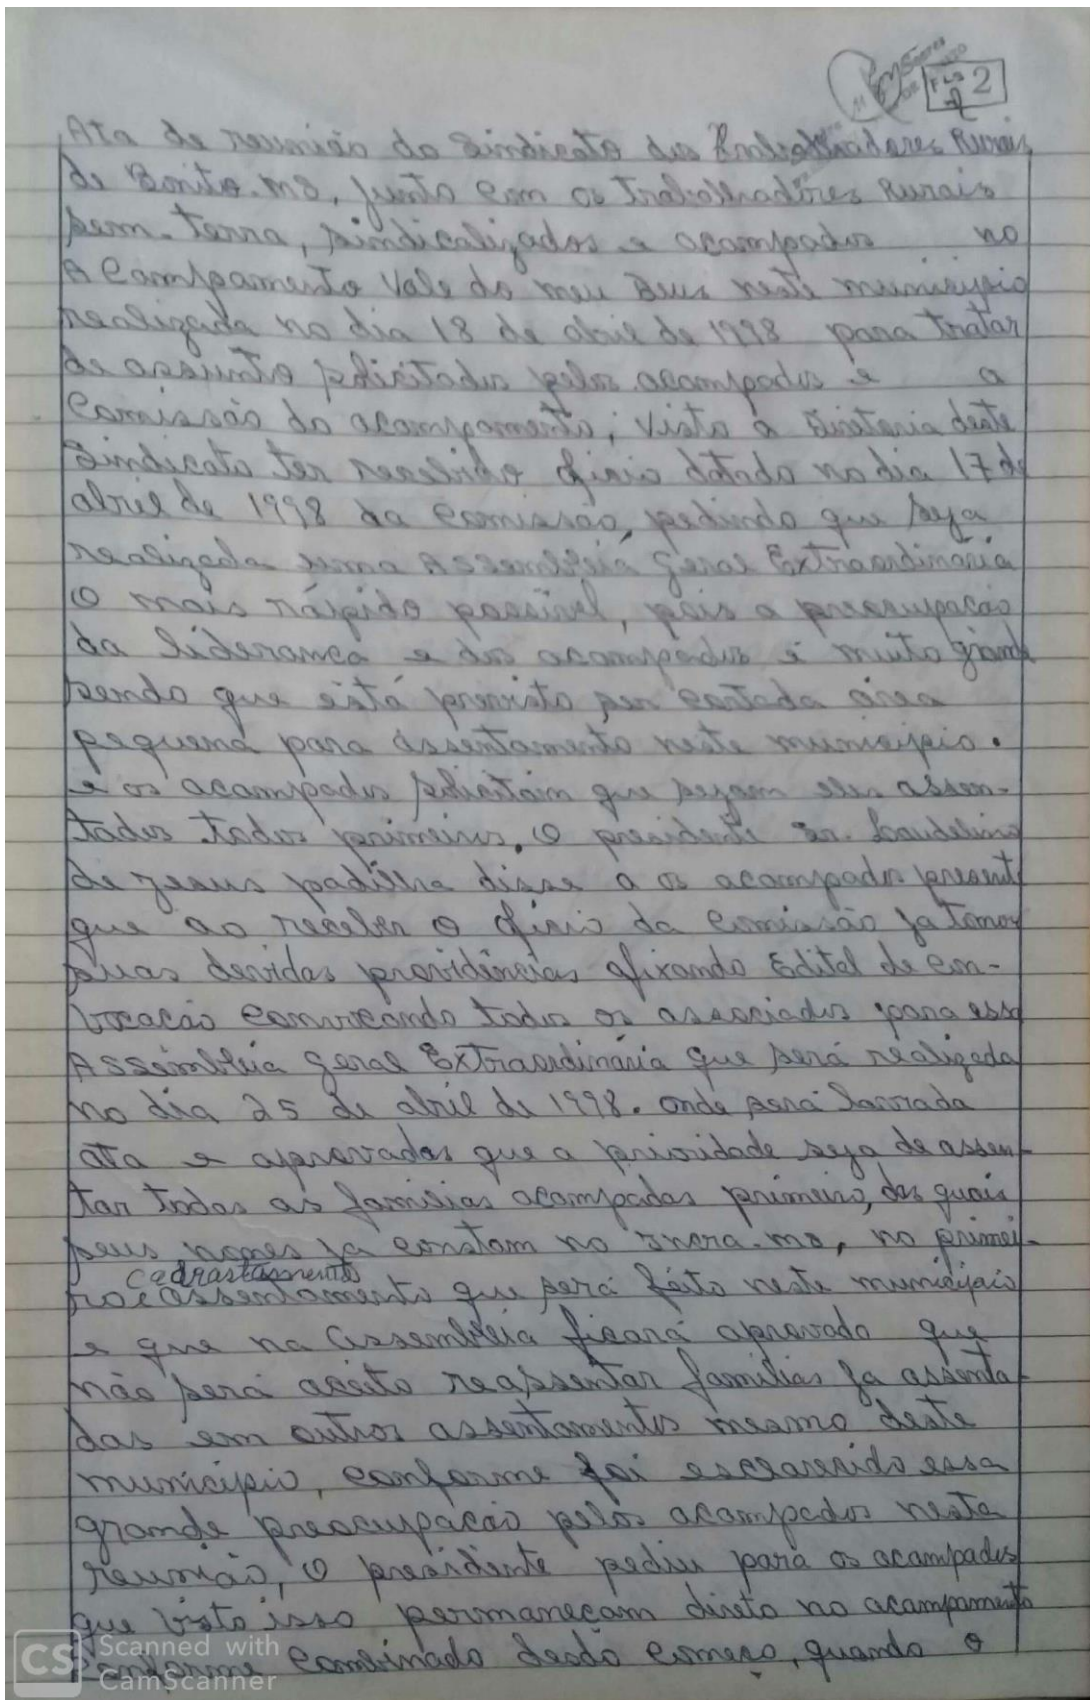 FLS 2
Ata de reunião do Sindicato dos Trabalhadores Rurais
de Bonito-MS, junto com os trabalhadores Rurais
sem-terra, sindicalizados e acampados no
Acampamento Vale do meu Deus neste município
realizada no dia 18 de abril de 1998 para tratar
de assunto solicitados pelos acampados e a
Comissão do acampamento, visto a Diretoria deste
Sindicato ter recebido ofício datado no dia 17 de
abril de 1998 da comissão, pedindo que seja
realizada uma Assembléia geral Extraordinária
o mais rápido possível, pois a preocupação
da liderança e dos acampados é muito grande
sendo que está previsto ser cortada área
pequena para assentamento neste município.
e os acampados solicitam que sejam eles assen-
tados todos primeiros. O presidente sr. Laudelino
de Jesus padilha disse a os acampados present
que ao receber o ofício da comissão ja tomou
suas devidas providências afixando Edital de con-
vocação convocando todos os associados para essa
Assembléia geral Extraordinária que será realizada
no dia 25 de abril de 1998. onde será lavrada
ata e aprovadas que a prioridade seja de assen-
tar todas as famílias acampadas primeiro, das quais
seus nomes ja constam no Incra-ms, no primei-
cadrastamento
ro e assentamento que será feito neste município
e que na assembléia ficará aprovado que
não será aceito reassentar famílias ja assenta-
das em outros assentamentos mesmo deste
município, conforme foi esclarecido essa
grande preocupação pelos acampados nesta
reunião, o presidente pediu para os acampados
que visto isso permaneçam direto no acampamento
conforme combinado desdo começo, quando o
CS Scanned with
CamScanner